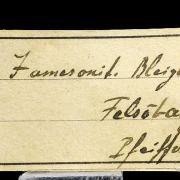 Jamesonit. Bleig
Felsöba
Pfeiffe